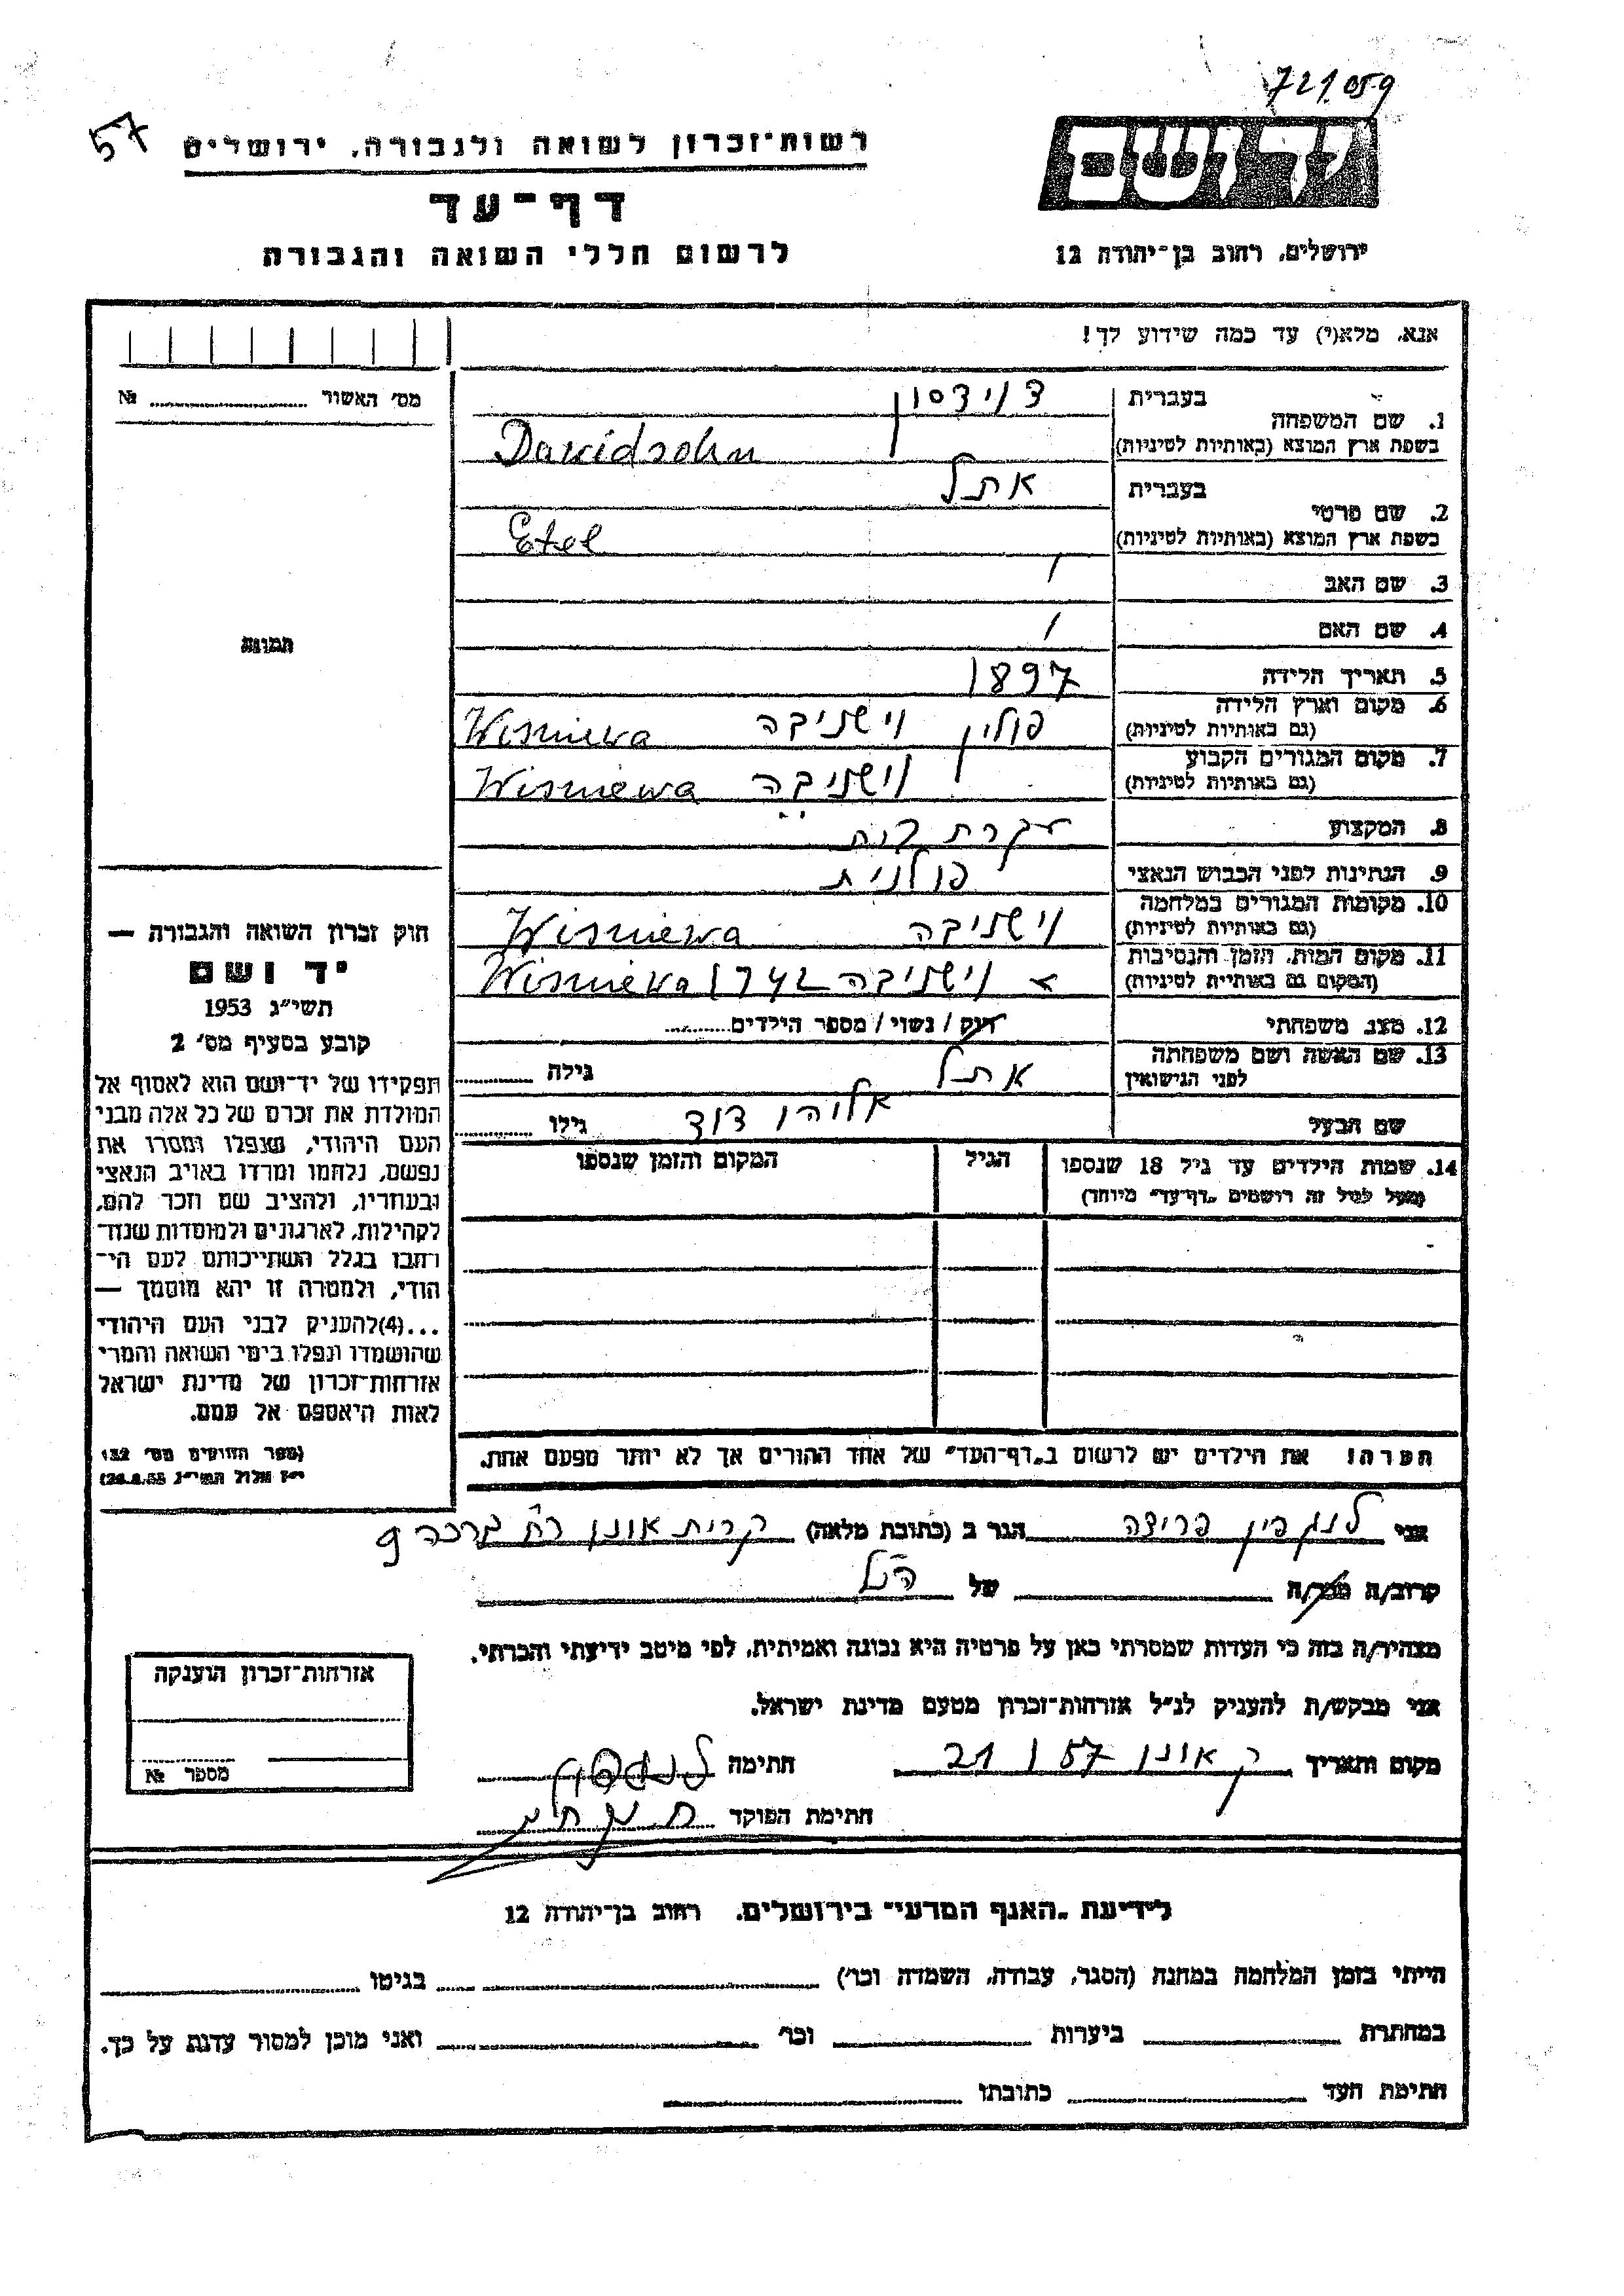 721.059
57
רשות־זכרון לשואה ולגבורה, ירושלים
דף־עד
לרשום חללי השואה והגבורה
יד ושם
ירושלים, רחוב בן־יהודה 12
אנא, מלא(י) עד כמה שידוע לך!
מס׳ האשור № 
1. שם המשפחה בעברית דוידסון
בשפת ארץ המוצא (באותיות לטיניות) Dawidsohn
2. שם פרטי בעברית אתל
בשפת ארץ המוצא (באותיות לטיניות) Etel
3. שם האב /
4. שם האם /
5. תאריך הלידה 1897
6. מקום וארץ הלידה (גם באותיות לטיניות) פולין וישניבה Wisniewa
7. מקום המגורים הקבוע (גם באותיות לטיניות) וישניבה Wisniewa
8. המקצוע עקרת בית
9. הנתינות לפני הכבוש הנאצי פולנית
10. מקומות המגורים במלחמה (גם באותיות לטיניות) וישניבה Wisniewa
11. מקום המות, הזמן והנסיבות (המקום גם באותיות לטיניות) וישניבה 1942 Wisniewa
12. מצב משפחתי רווק / נשוי / מספר הילדים
13. שם האשה ושם משפחתה לפני הנישואין אתל גילה
שם הבעל אליהו דוד גילו
14. שמות הילדים עד גיל 18 שנספו הגיל המקום והזמן שנספו
(מעל לגיל זה רושמים „דף־עד״ מיוחד)
הערה! את הילדים יש לרשום ב„דף־העד״ של אחד ההורים אך לא יותר מפעם אחת.
תמונה
חוק זכרון השואה והגבורה —
יד ושם
תשי״ג 1953
קובע בסעיף מס׳ 2
תפקידו של יד־ושם הוא לאסוף אל
המולדת את זכרם של כל אלה מבני
העם היהודי, שנפלו ומסרו את
נפשם, נלחמו ומרדו באויב הנאצי
ובעוזריו, ולהציב שם וזכר להם,
לקהילות, לארגונים ולמוסדות שנח־
רבו בגלל השתייכותם לעם הי־
הודי, ולמטרה זו יהא מוסמך —
...(4)להעניק לבני העם היהודי
שהושמדו ונפלו בימי השואה והמרי
אזרחות־זכרון של מדינת ישראל
לאות היאספם אל עמם.
(ספר החוקים מס׳ 132
י״ז אלול תשי״ג 28.8.53)
אני לנגפין פריצה הגר ב (כתובת מלאה) קרית אונו רח׳ ברכה 9
קרוב/ה מכר/ה של הנ״ל
מצהיר/ה בזה כי העדות שמסרתי כאן על פרטיה היא נכונה ואמיתית, לפי מיטב ידיעתי והכרתי.
אני מבקש/ת להעניק לנ״ל אזרחות־זכרון מטעם מדינת ישראל.
מקום ותאריך ק אונו 21 I 57 חתימה
חתימת הפוקד
אזרחות־זכרון הוענקה
מספר №
לידיעת „האגף המדעי״ בירושלים, רחוב בן־יהודה 12
הייתי בזמן המלחמה במחנה (הסגר, עבודה, השמדה וכו׳) בגיטו
במחתרת ביערות וכו׳ ואני מוכן למסור עדות על כך.
חתימת העד כתובתו